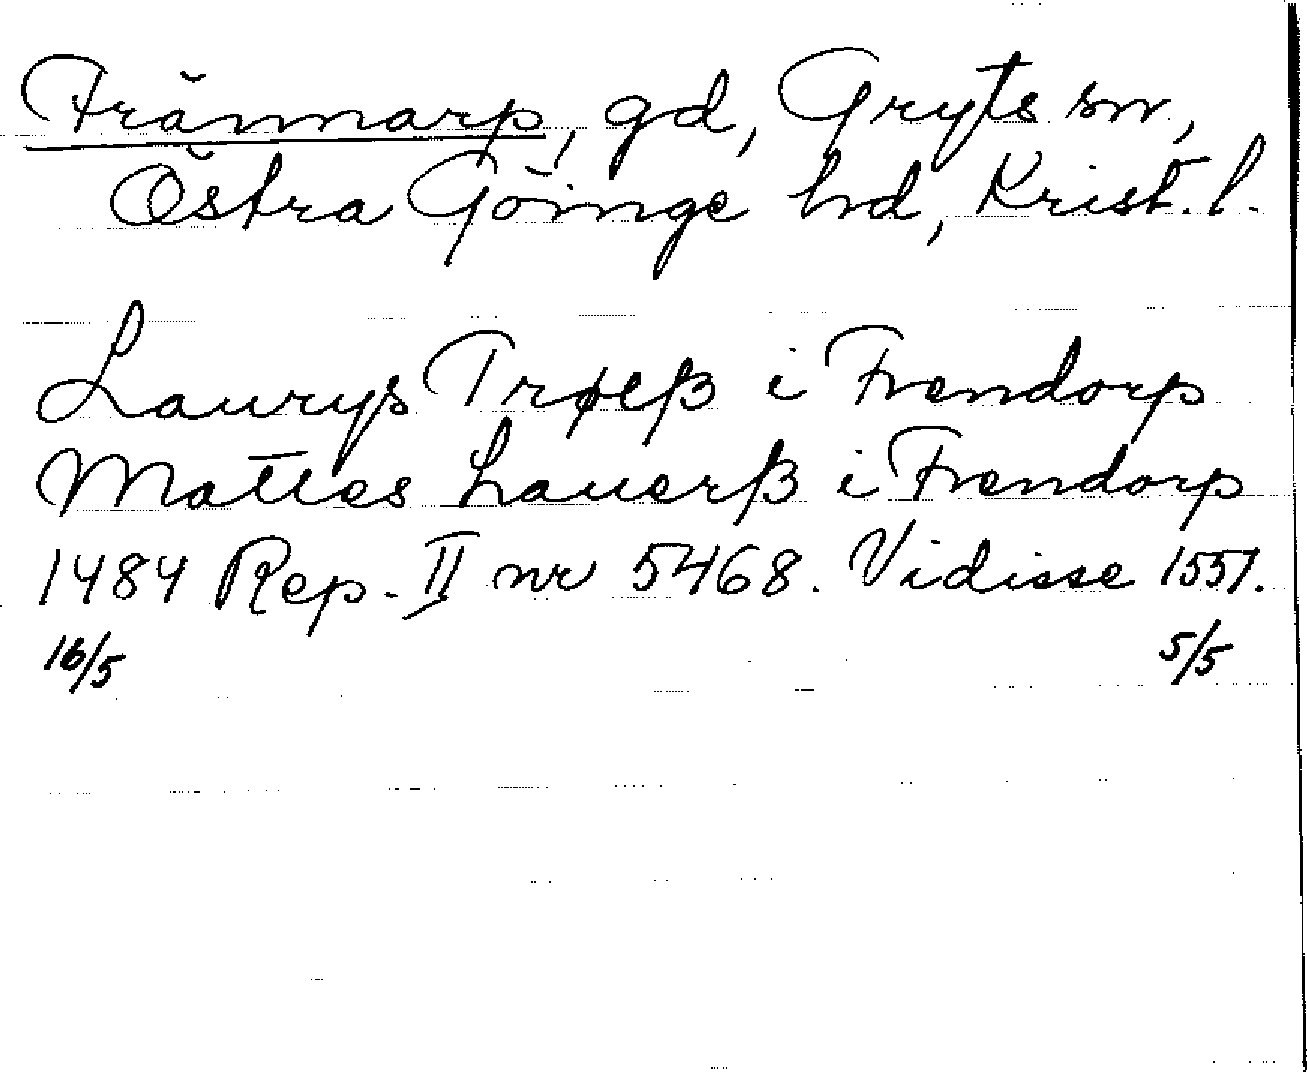 Frännarp, gd, Gryts sn,
Östra Göinge hd, Krist. l.
Laurys Trøelß i Frendorp
Mattes Lauerß i Frendorp
1484 Rep. II nr 5468. Vidisse 1551.
16/5 5/5